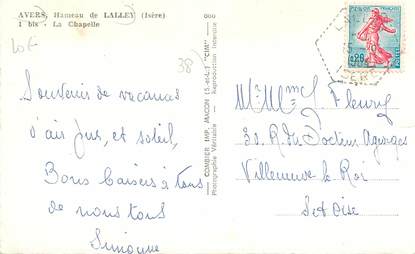 AVERS, Hameau de LALLEY (Isère)
1 bis - La Chapelle
000
10F
38)
Souvenirs de vacances
d'air pur, et soleil,
Bons baisers à tous
de nous tous
Simonne
COMBIER IMP. MACON (S.-et-L.) "CIM"
Photographie Véritable - Reproduction Interdite
Mr Mme Fleury
30, R. du Docteur
Villeneuve le Roi
S et Oise
FRANÇAISE
0,20
POSTES